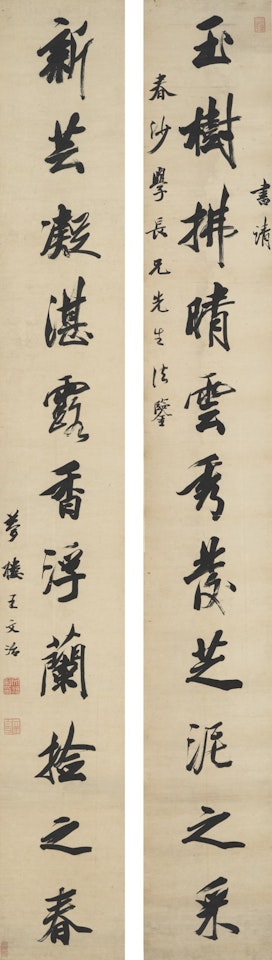 書請
玉樹拂晴雲秀發芝泥之采
春沙學長兄先生法鑒
新芸凝湛露香浮蘭檢之春
夢樓王文治